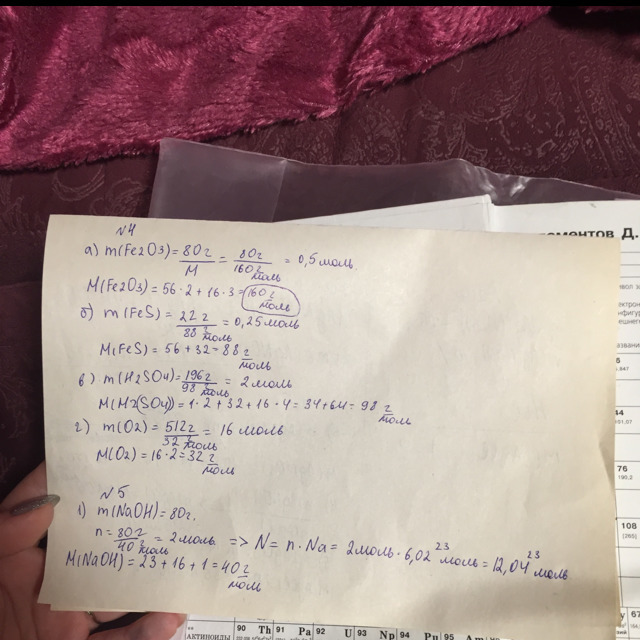 ементов Д.
№4
а) m(Fe2O3) = 80г/M = 80г/160 г/моль = 0,5 моль
M(Fe2O3) = 56·2 + 16·3 = 160 г/моль
б) m(FeS) = 22г/88 г/моль = 0,25 моль
M(FeS) = 56 + 32 = 88 г/моль
в) m(H2SO4) = 196г/98 г/моль = 2 моль
M(H2(SO4)) = 1·2 + 32 + 16·4 = 34 + 64 = 98 г/моль
г) m(O2) = 512г/32 г/моль = 16 моль
M(O2) = 16·2 = 32 г/моль
№5
1) m(NaOH) = 80г.
n = 80г/40 г/моль = 2 моль => N = n·Na = 2моль·6,02²³ моль = 12,04²³ моль
M(NaOH) = 23 + 16 + 1 = 40 г/моль
76
190.2
108
[265]
АКТИНОИДЫ
90 Th 91 Pa 92 U 93 Np 94 Pu 95 Am
67